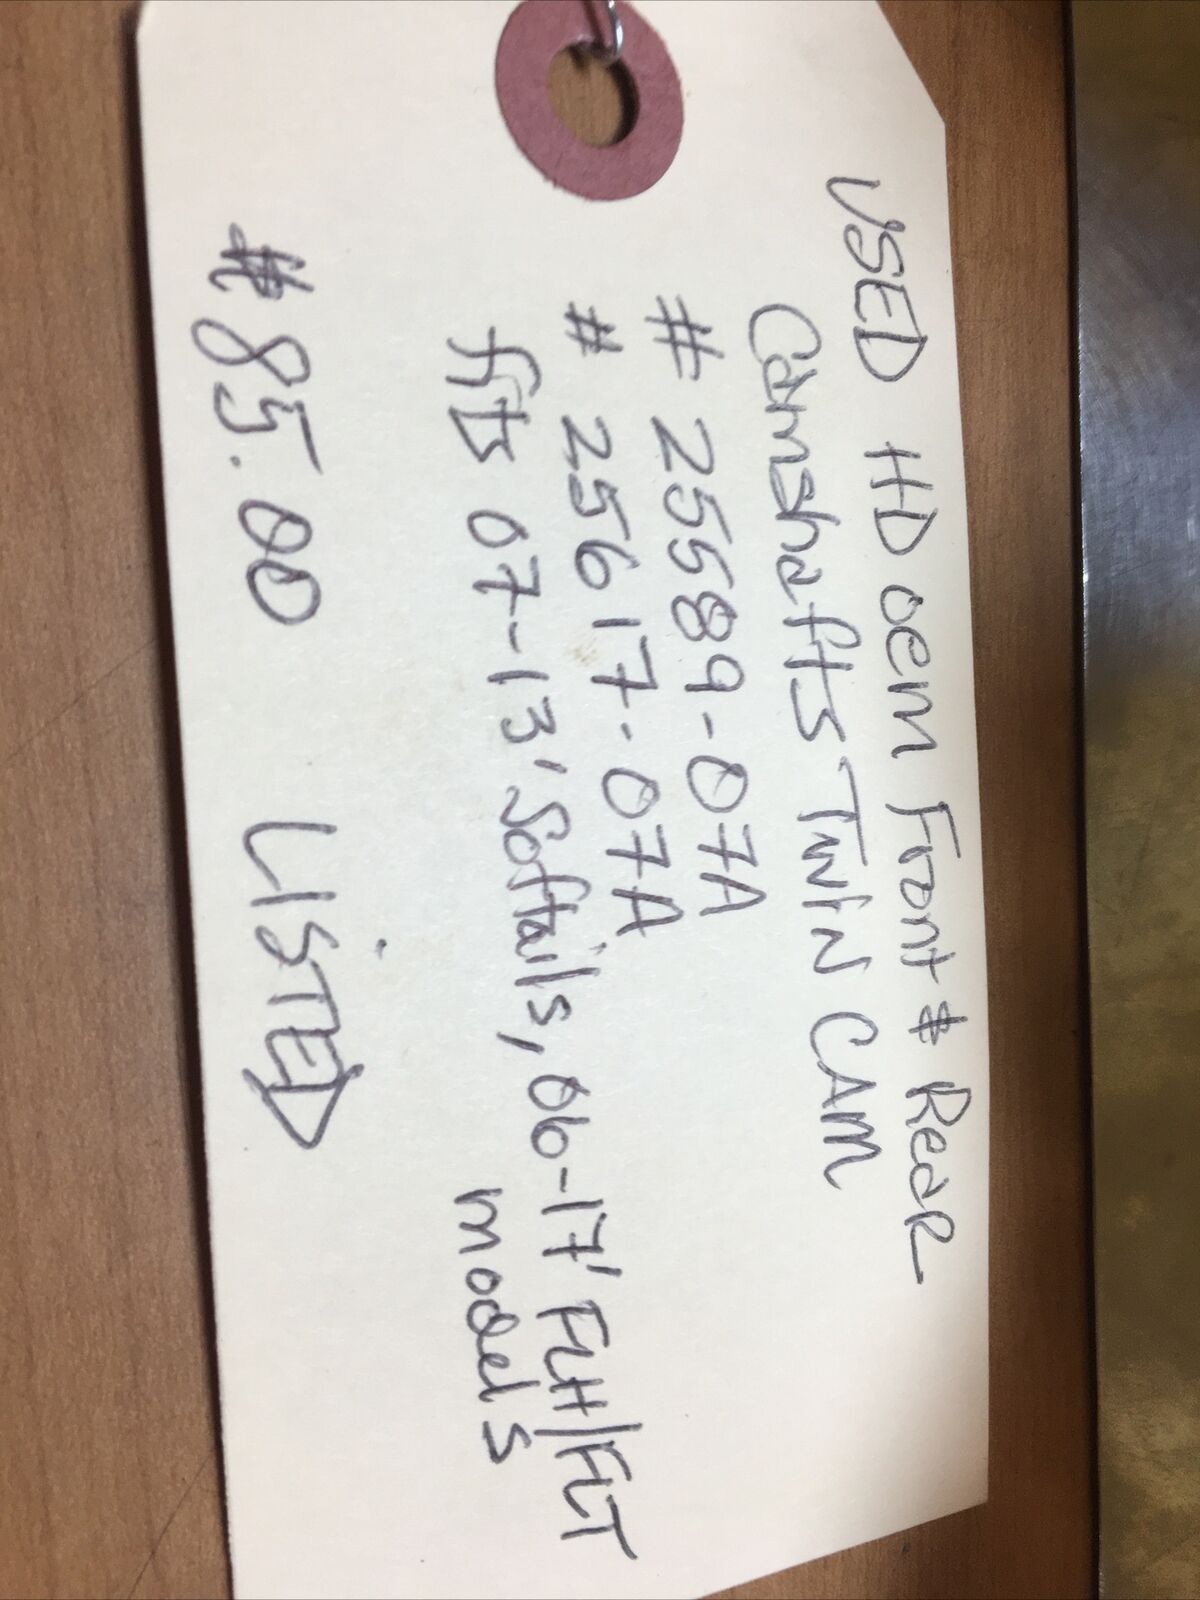 USED HD oem Front & Rear
Camshafts TWIN CAM
# 25589-07A
# 25617-07A
fits 07-13' Softails, 06-17' FLH/FLT
models
$85.00 LISTED